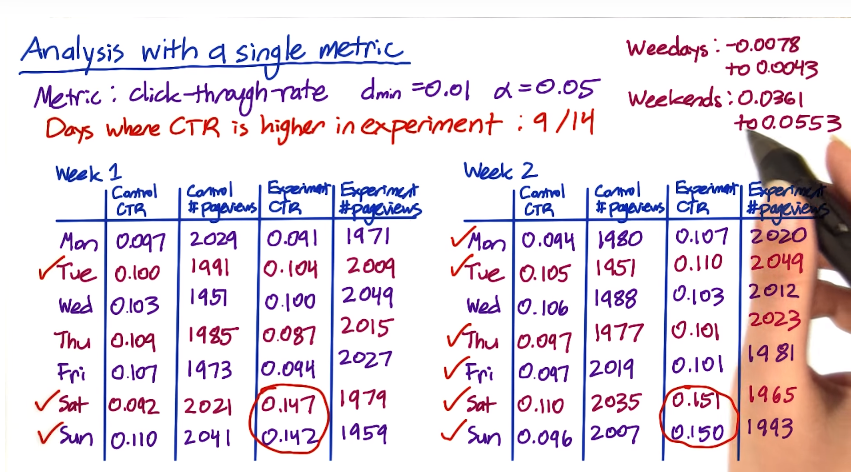 Analysis with a single metric
Metric: click-through-rate dmin = 0.01 α = 0.05
Days where CTR is higher in experiment: 9/14
Weedays: -0.0078
to 0.0043
Weekends: 0.0361
to 0.0553
Week 1
Control CTR | Control #pageviews | Experiment CTR | Experiment #pageviews
Mon 0.097 2029 0.091 1971
✓Tue 0.100 1991 0.104 2009
Wed 0.103 1951 0.100 2049
Thu 0.109 1985 0.087 2015
Fri 0.107 1973 0.094 2027
✓Sat 0.092 2021 0.147 1979
✓Sun 0.110 2041 0.142 1959
Week 2
Control CTR | Control #pageviews | Experiment CTR | Experiment #pageviews
✓Mon 0.094 1980 0.107 2020
✓Tue 0.105 1951 0.110 2049
Wed 0.106 1988 0.103 2012
✓Thu 0.097 1977 0.101 2023
✓Fri 0.097 2019 0.101 1981
✓Sat 0.110 2035 0.151 1965
✓Sun 0.096 2007 0.150 1993